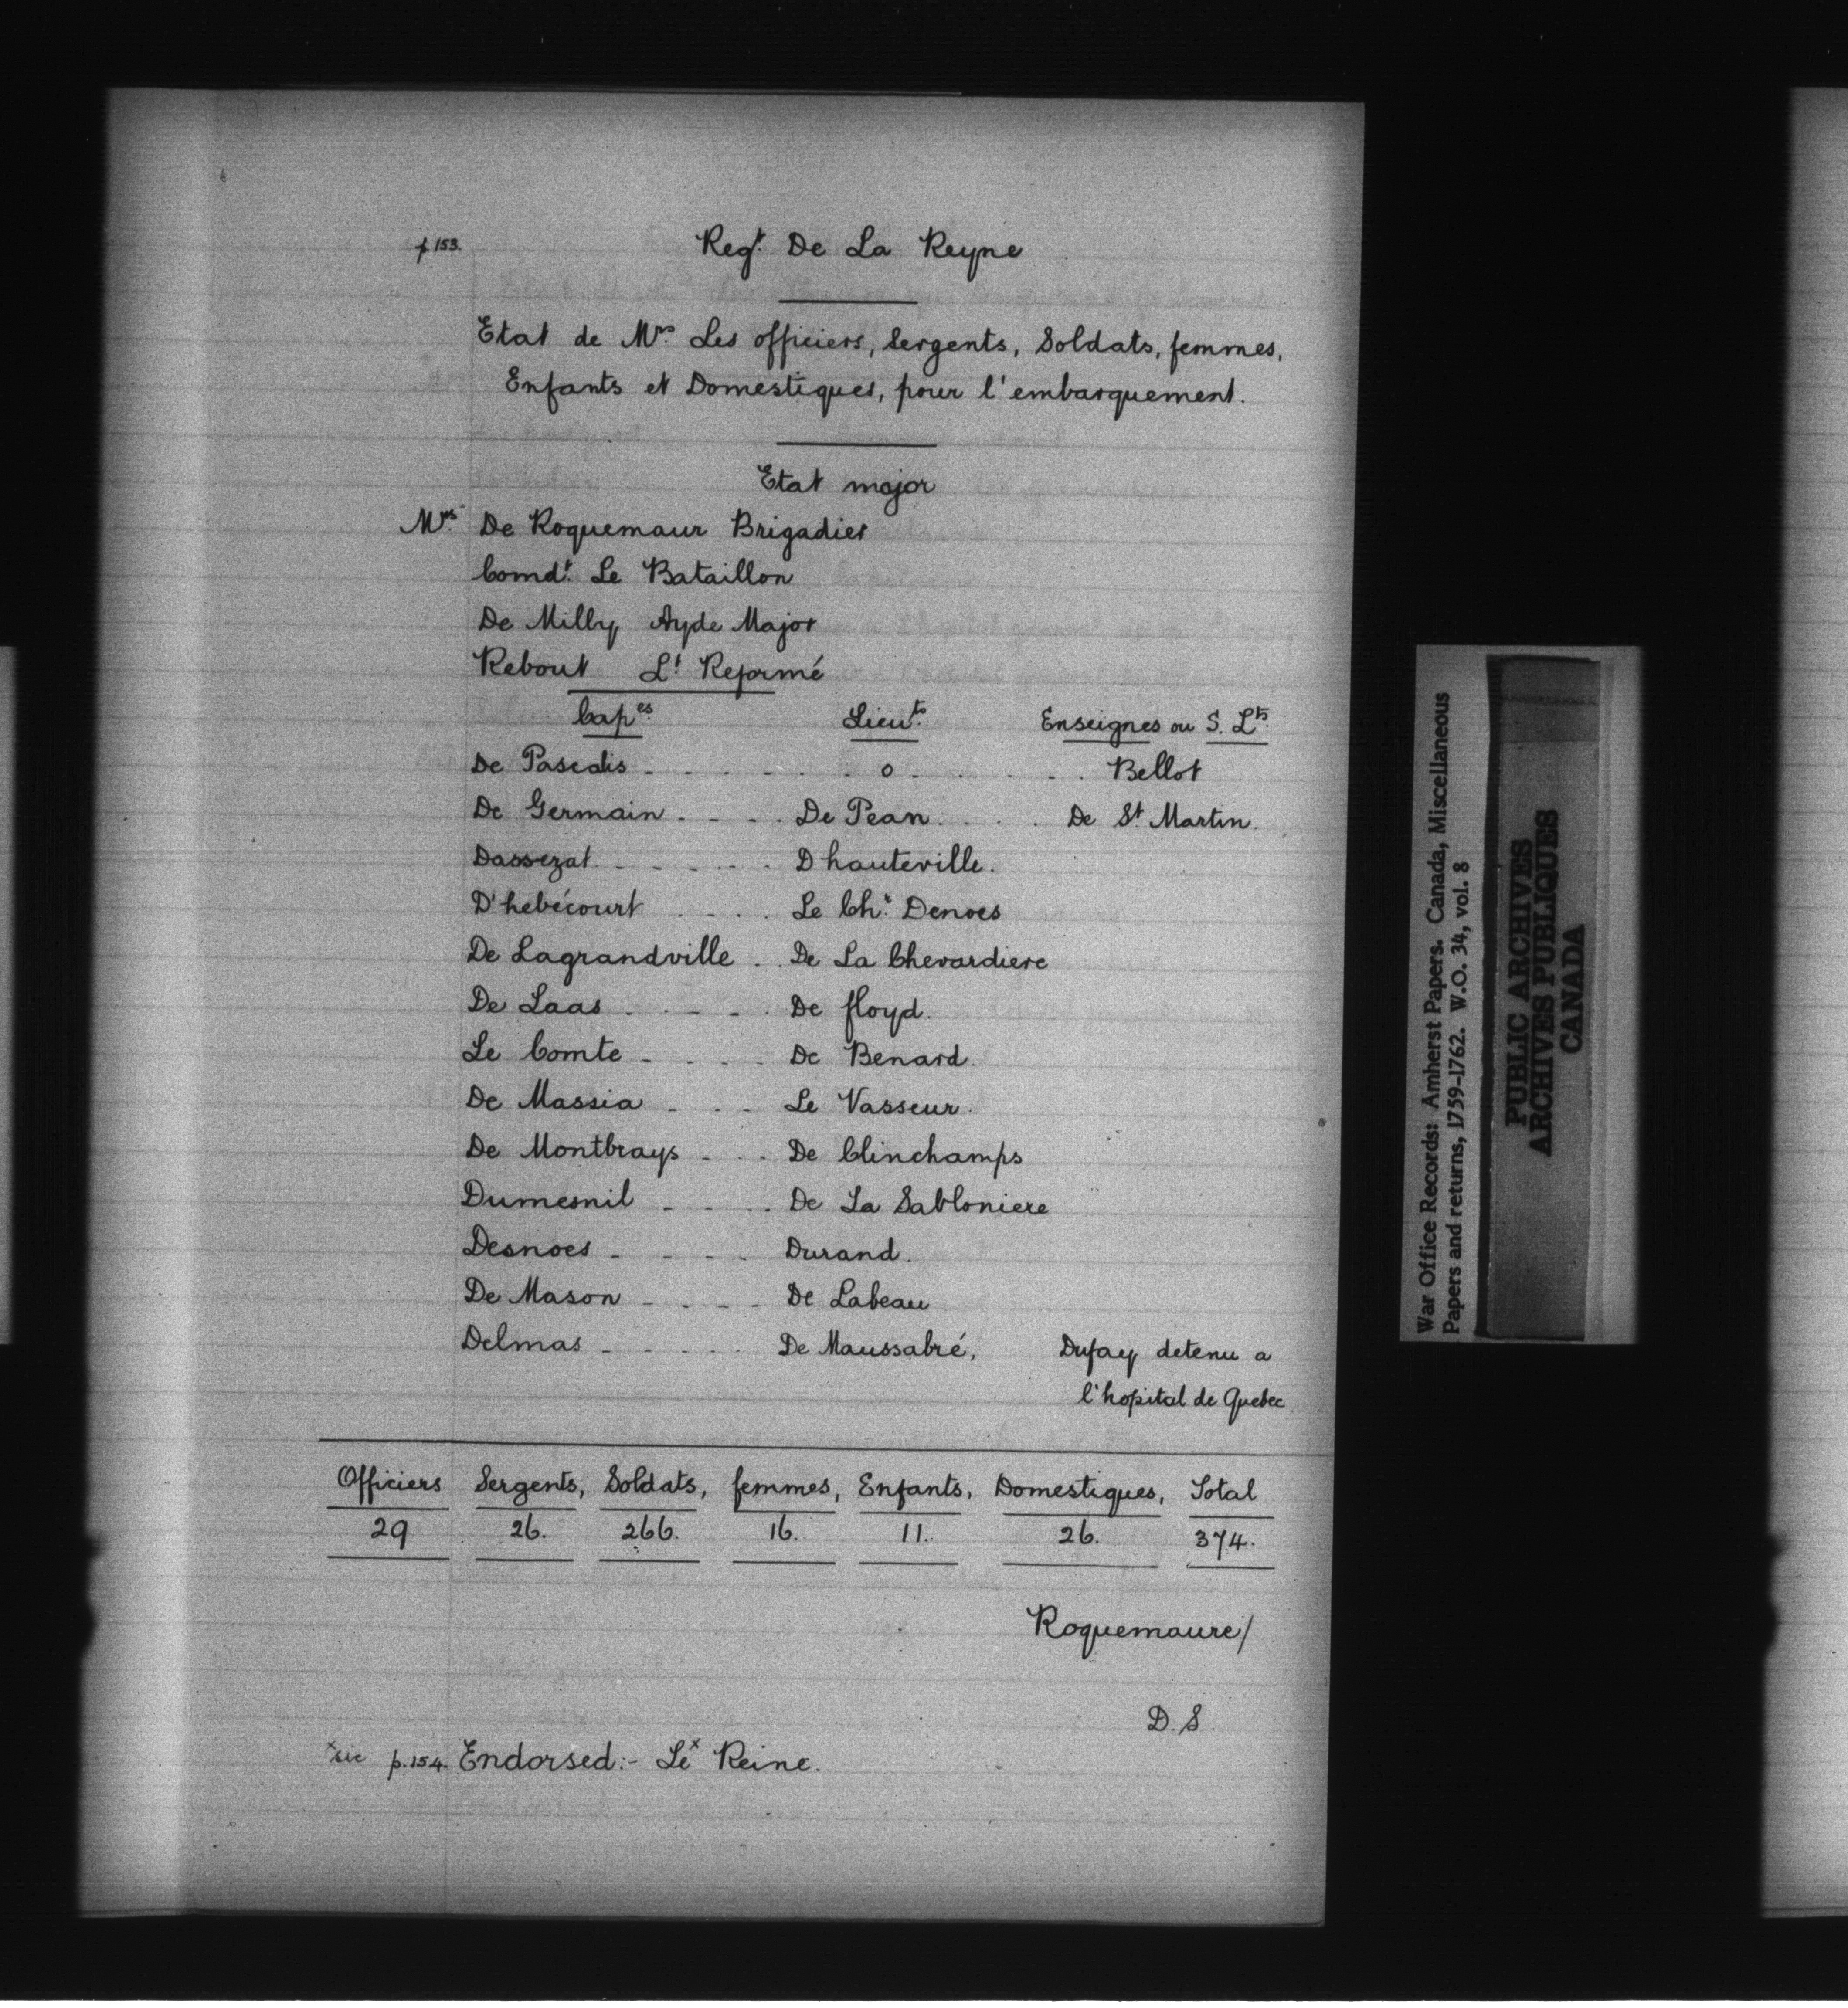 p 153.
Regt. De La Reyne
Etat de Mrs. Les officiers, Sergents, Soldats, femmes,
Enfants et Domestiques, pour l'embarquement.
Etat major
Mrs. De Roquemaur Brigadier
Comdt. Le Bataillon
De Milly Ayde Major
Rebout Lt. Reformé
Capes. Lieuts. Enseignes ou S. Lts.
De Pascalis - - - - - - o - - - - - Bellot
De Germain - - - - De Pean - - - - De St. Martin.
Dassezat - - - - - - D hauteville.
D'hebécourt - - - - Le Chr. Denoes
De Lagrandville - - De La Chevardiere
De Laas - - - - - De floyd.
Le Comte - - - - De Benard.
De Massia - - - Le Vasseur.
De Montbrays - - - De Clinchamps
Dumesnil - - - - De La Sabloniere
Desnoes - - - - Durand.
De Mason - - - - De Labeau
Delmas - - - - - De Maussabré, Dufay detenu a
l'hopital de Quebec.
Officiers Sergents, Soldats, femmes, Enfants, Domestiques, Total
29 26. 266. 16. 11. 26. 374.
Roquemaure/
D. S.
xsic p.154. Endorsed:- Lex Reine.
War Office Records: Amherst Papers. Canada, Miscellaneous
Papers and returns, 1759-1762. W.O. 34, vol. 8
PUBLIC ARCHIVES
ARCHIVES PUBLIQUES
CANADA